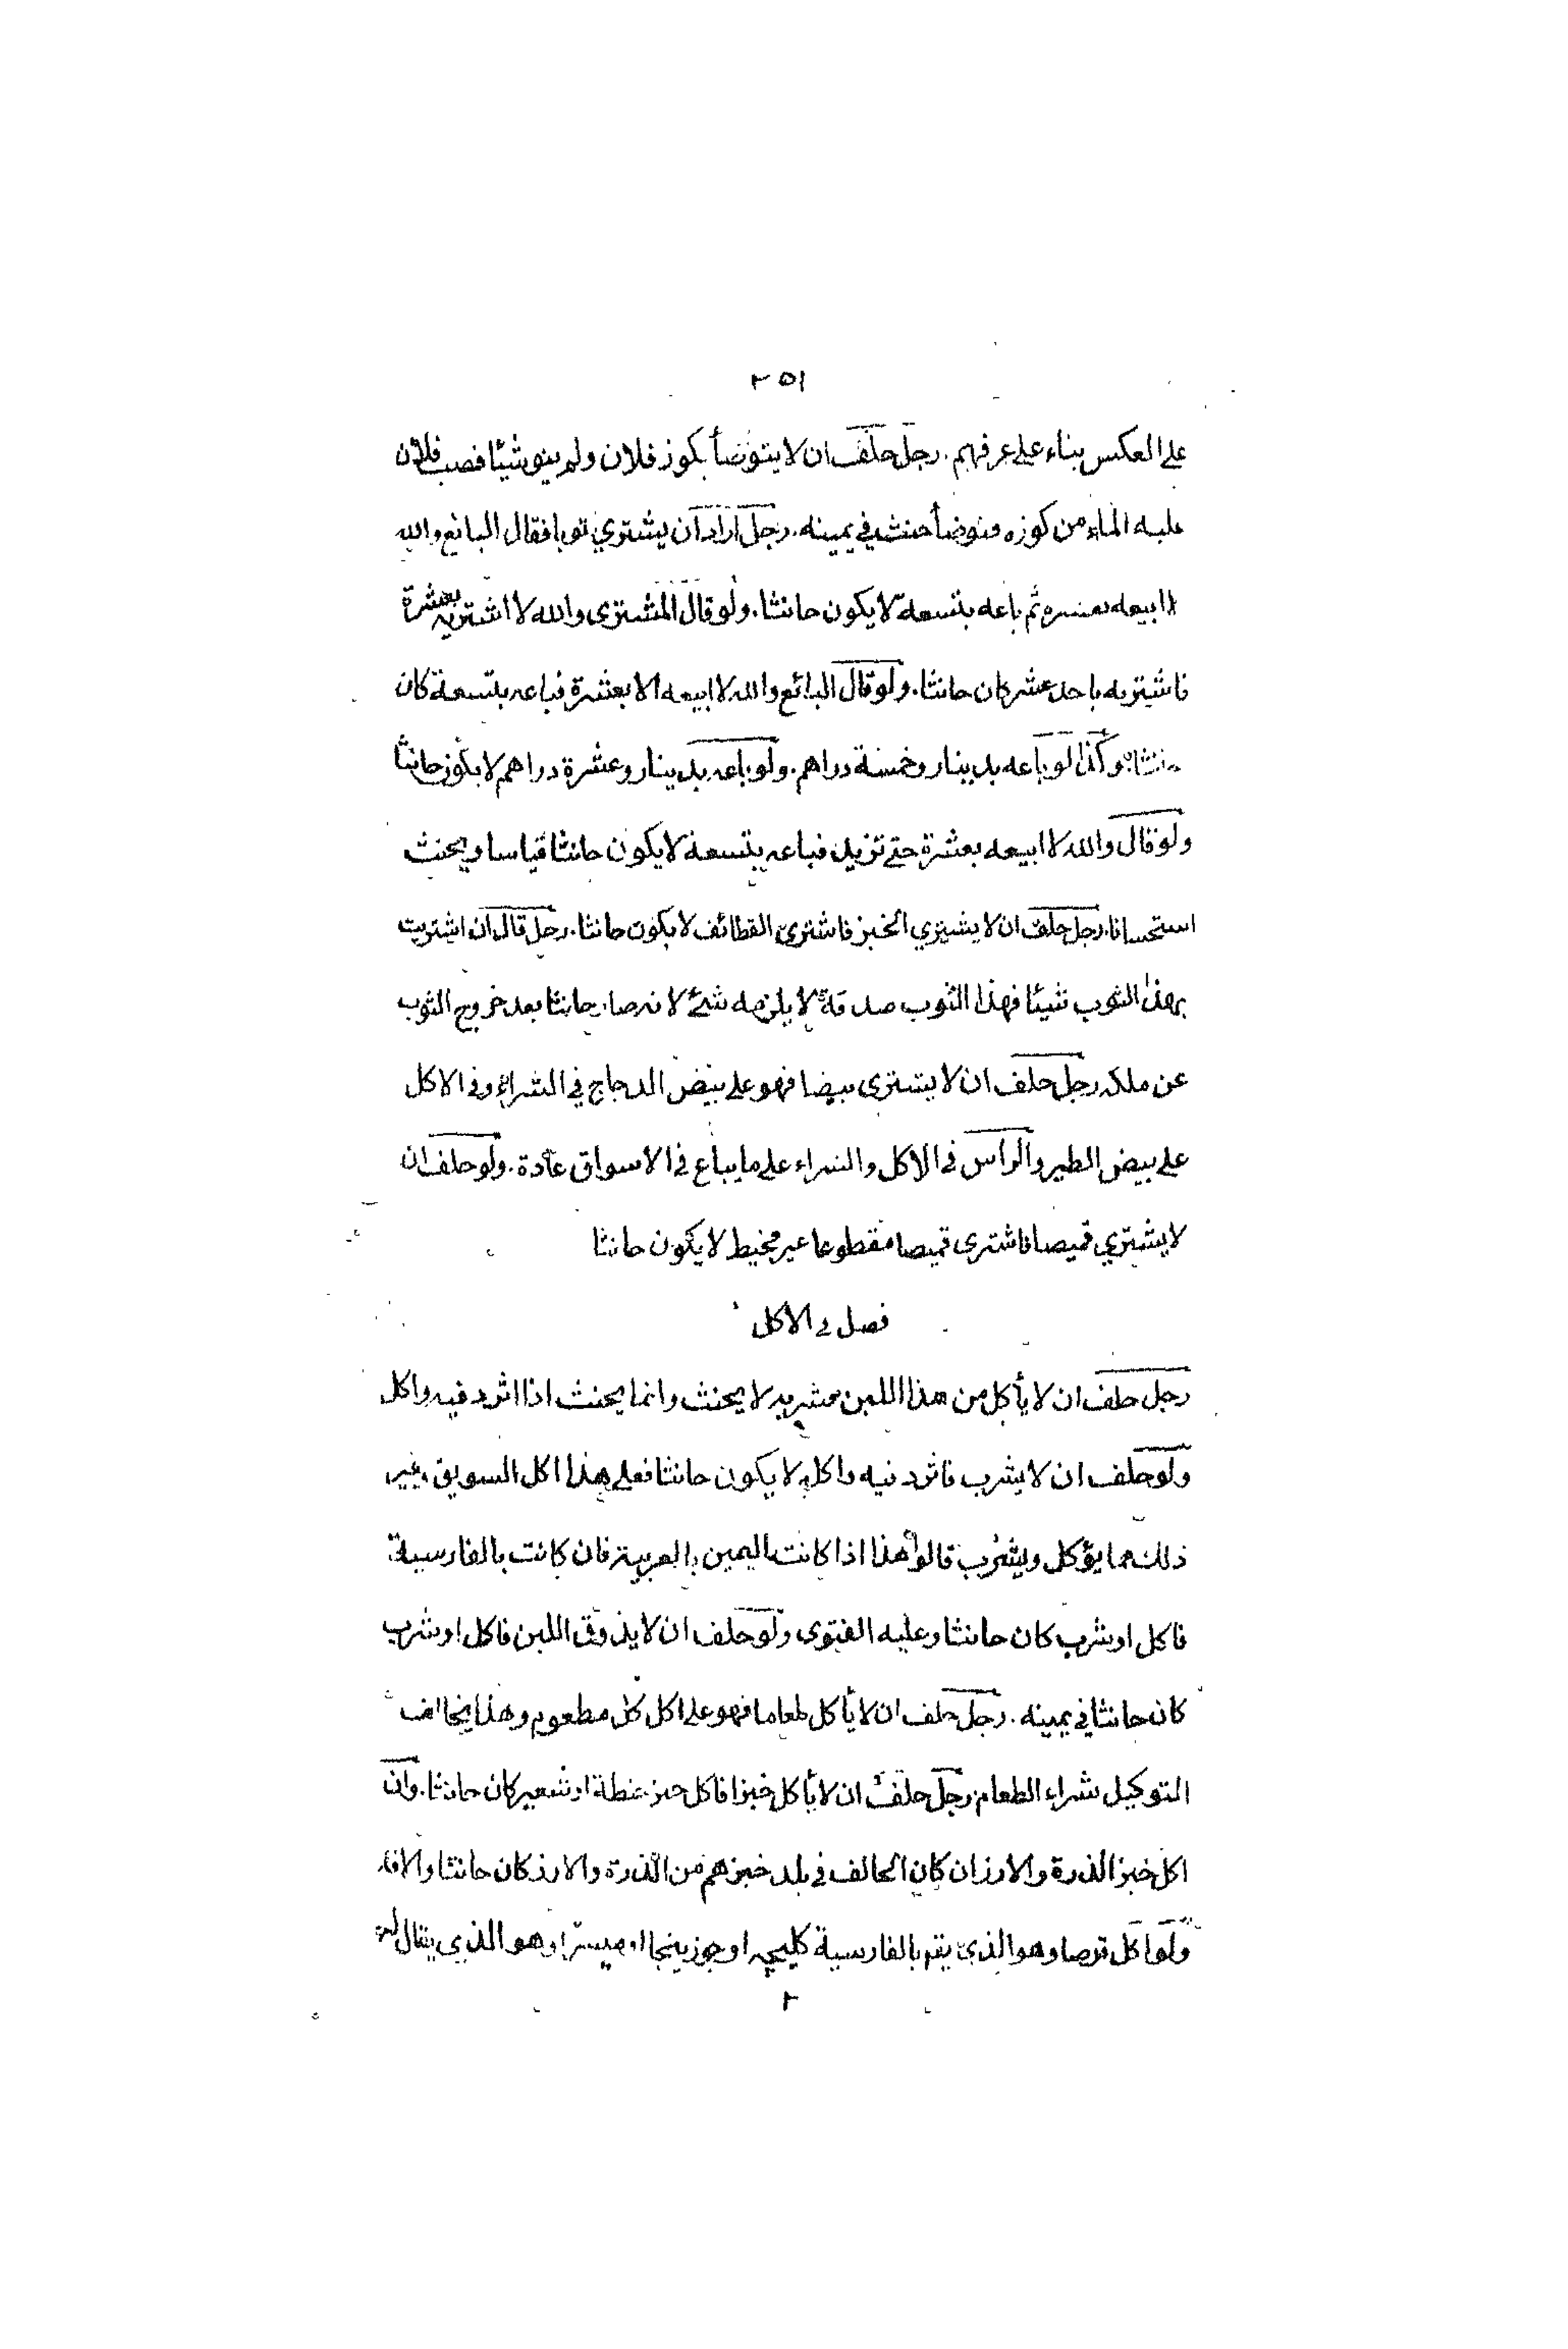 ٢٥١
على العكس بناء على عرفهم. رجل حلف ان لا يتوضأ بكوز فلان ولم ينو شيئا فصب فلان
عليه الماء من كوزه فتوضأ حنث في يمينه. رجل اراد ان يشتري ثوبا فقال البائع والله
لا ابيعه بعشرة ثم باعه بتسعة لا يكون حانثا. ولو قال المشترى والله لا اشتريه بعشرة
فاشتريه باحد عشر كان حانثا. ولو قال البائع والله لا ابيعه الا بعشرة فباعه بتسعة كان
حانثا وكذا لو باعه بدينار وخمسة دراهم. ولو باعه بدينار وعشرة دراهم لا يكون حانثا
ولو قال والله لا ابيعه بعشرة حتى تزيد فباعه بتسعة لا يكون حانثا قياسا ويحنث
استحسانا. رجل حلف ان لا يشتري الخبز فاشترى القطائف لا يكون حانثا. رجل قال ان اشتريت
بهذا الثوب شيئا فهذا الثوب صدقة لا يلزمه شئ لانه صار حانثا بعد خروج الثوب
عن ملكه رجل حلف ان لا يشترى بيضا فهو على بيض الدجاج في الشراء وفى الاكل
على بيض الطير والراس فى الاكل والشراء على ما يباع فى الاسواق عادة. ولو حلف ان
لا يشتري قميصا فاشترى قميصا مقطوعا غير مخيط لا يكون حانثا
فصل فى الاكل
رجل حلف ان لا يأكل من هذا اللبن فشربه لا يحنث وانما يحنث اذا اثرد فيه واكل
ولو حلف ان لا يشرب فاثرد فيه واكله لا يكون حانثا فعلى هذا اكل السويق وغير
ذلك مما يؤكل ويشرب قالوا هذا اذا كانت اليمين بالعربية فان كانت بالفارسية
فاكل او شرب كان حانثا وعليه الفتوى ولو حلف ان لا يذوق اللبن فاكل او شرب
كان حانثا في يمينه. رجل حلف ان لا يأكل طعاما فهو على اكل كل مطعوم وهذا يخالف
التوكيل بشراء الطعام رجل حلف ان لا يأكل خبزا فاكل خبز حنطة او شعير كان حانثا. وان
اكل خبز الذرة والارز ان كان الحالف في بلد خبزهم من الذرة والارز كان حانثا والا فلا
ولو اكل قرصا وهو الذي يقال بالفارسية كليچه او جوزينجا او ميسرا وهو الذي يقال له
٢